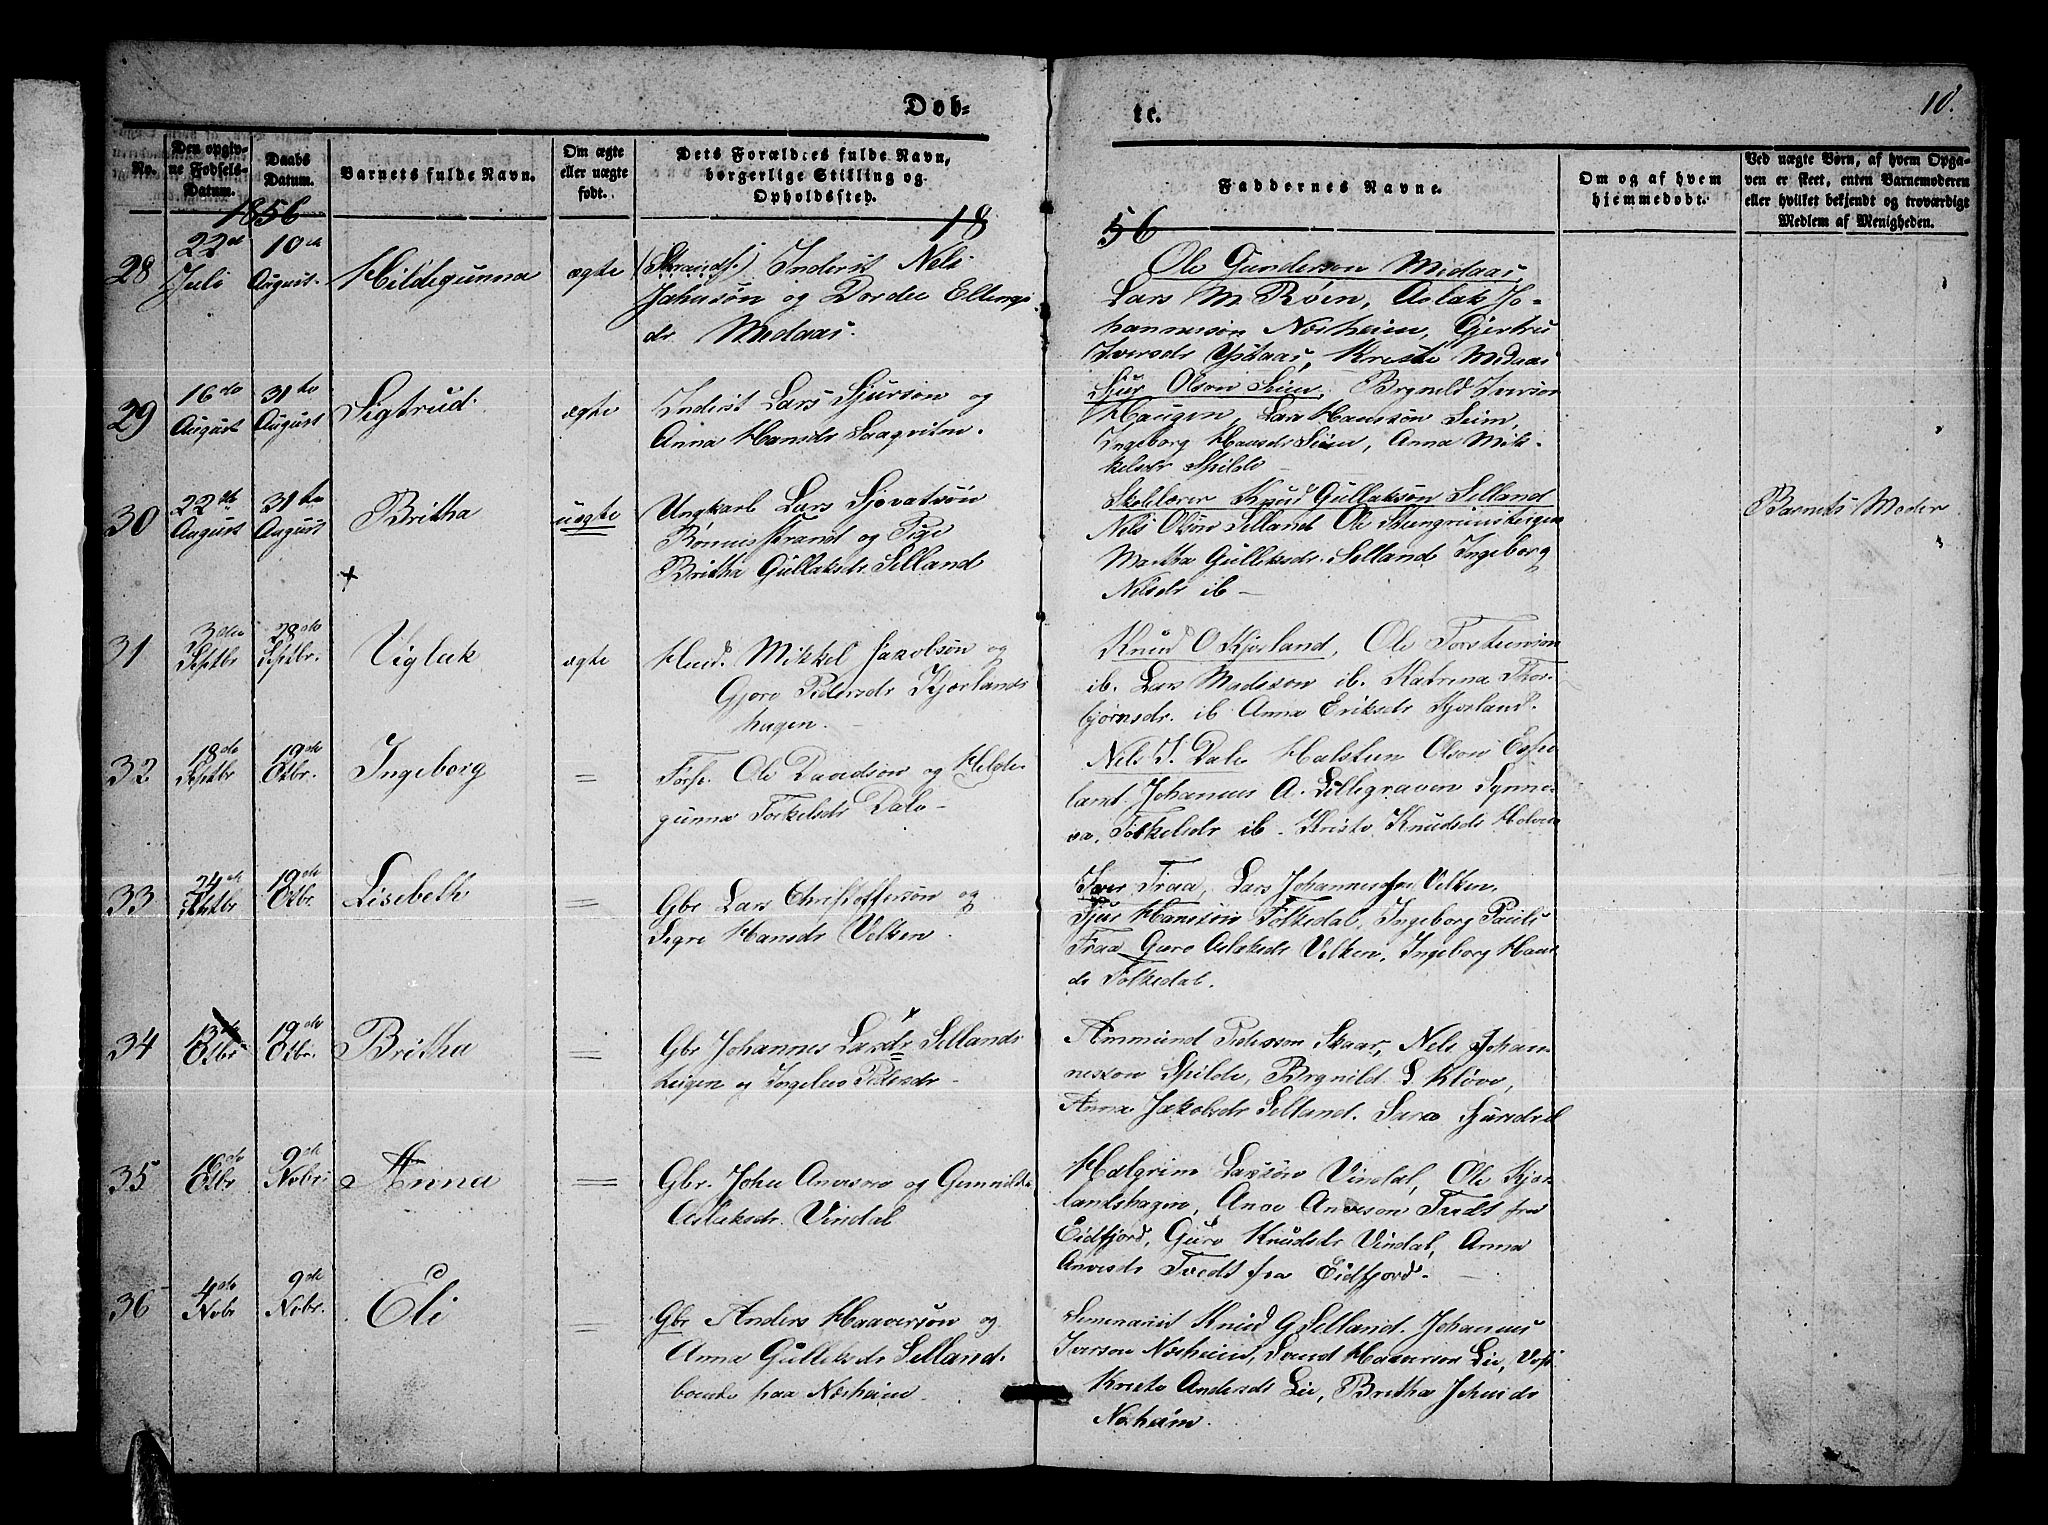 Døb-
te.
10.
No.
Den opgiv-
ne Fødsels-
Datum.
Daabs
Datum.
Barnets fulde Navn.
Om ægte
eller uægte
født.
Dets Forældres fulde Navn,
borgerlige Stilling og
Opholdssted.
Faddernes Navne.
Om og af hvem
hjemmedøbt.
Ved uægte Børn, af hvem Opga-
ven er skeet, enten Barnemoderen
eller hvilket bekjendt og troværdigt
Medlem af Menigheden.
1856
18
56
28
22de
Juli
10de
August.
Hildegunna
ægte
(Strands.) Inderst Nels
Johnsøn og Dordei Ellings
dr Medaas.
Ole Gunderson Medaas,
Lars M. Røen, Aslak Jo-
hannesøn Norheim, Gjertru
Iversdr Ystaas, Kriste Medaas
29
16de
August
31te
August
Sigtrud
ægte
Inderst Lars Sjursøn og
Anna Hansdr Saaqviten.
Sjur Olson Seim, Brynild Iverson
Haugen, Lars Hansøn Seim,
Ingeborg Hansdr Seim, Anna Mik-
kelsdr Spilde
30
22de
August
31te
August
Britha
+
uægte
Ungkarl Lars Sjovatsøn
Rønnestrand og Pige
Britha Gullaksdr Selland
Skollærer Knud Gullaksøn Selland
Nils Olsøn Selland Ole
Martha Gulleksdr. Selland Ingeborg
Nelsdr ib –
Barnets Moder
31
3die
Septbr
28de
Septbr.
Viglak
ægte
Huus. Mikkel Jacobsøn og
Gjøro Pedersdr Kjærlands
hagen. –
Knud O Kjerland, Ole Torsteinson
ib. Lars Madsson ib. Katrina Thor-
bjørnsdr. ib Anna Eriksdr Kjerland.
32
18de
Septbr
19de
Otbr.
Ingeborg
=
Forp. Ole Davidsøn og Hilde-
gunna Torkelsdr Dale –
Nels T. Dale Halsten Olson Espe-
land Johannes A. Lillegraven Synne-
va, Torkelsdr ib. Kristo Knudsdr Holven
33
24de
Septbr
19de
Otbr.
Lisebeth
=
Gbr Lars Christoffersøn og
Segre Hansdr Velken.
Iver Traa, Lars Johannesøn Velken,
Sjur Hansøn Folkedal, Ingeborg Pauls
Traa Guro Aslaksdr Velken, Ingeborg Hans-
dr Folkedal.
34
13de
Otbr
19de
Otbr.
Britha
=
Gbr Johannes Larsdr Sellands
teigen og Ingeleiv Pedersdr –
Ammund Pederson Skaar, Nels Johan-
nesson Spilde, Brynild S. Kløve,
Anna Jakobsdr Selland. Sara Sjursdr
35
16de
Otbr
9de
Nobr
Anna
=
Gbr. John Anveson og Gunnilda
Aslaksdr. Vindal
Halgrim Larsøn Vindal, Ole Kjær-
landshagen, Anve Anveson Tvedt fra
Eidfjord, Guro Knudsdr Vindal, Anna
Anvesdr Tvedt fra Eidfjord. –
36
4de
Nobr
9de
Nobr.
Eli
=
Gbr Anders Haaversøn og
Anna Gulleksdr Selland.
boende paa Norheim.
Seminarist Knud G Selland. Johannes
Iverson Norheim, Svend Haaverson Lie,
Kristo Andersdr Lie, Britha Johnsdr
Norheim.